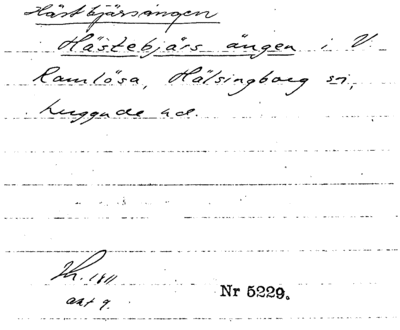 Hästbjärsängen
Hästebjärs ängen i V.
Ramlösa, Hälsingborg sn,
huggade ud.
Th. 1811
akt 9.
Nr 5229.